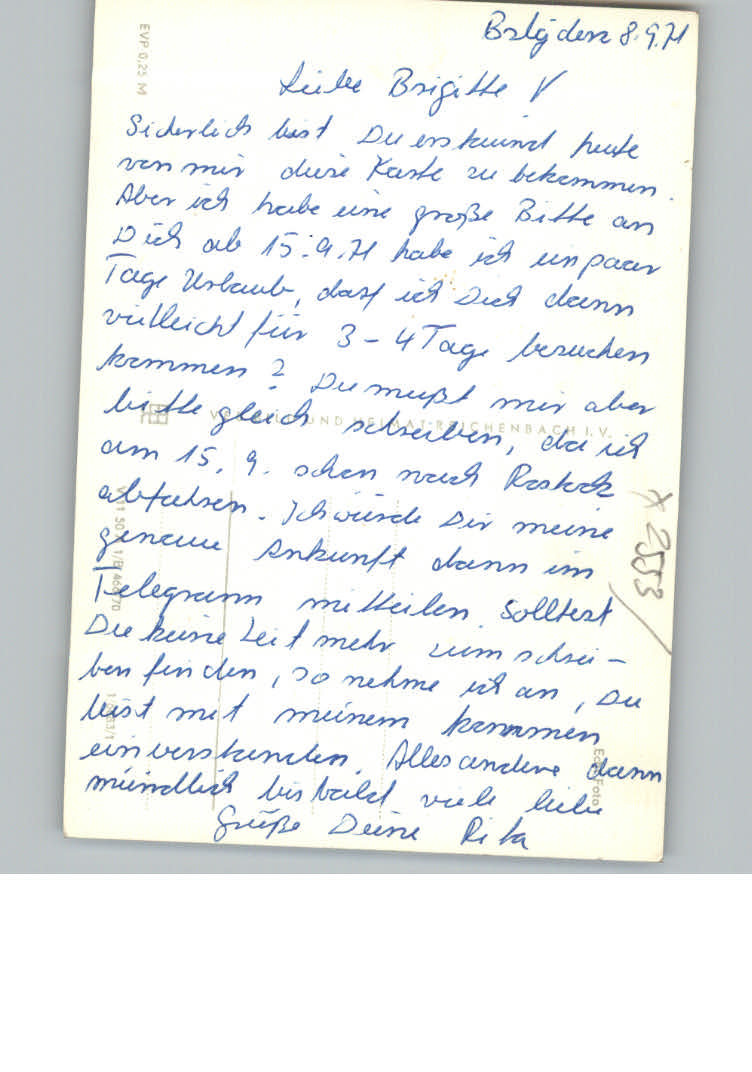 den 8.9.71
Liebe Brigitte!
Sicherlich bist Du erstaunt heute
von mir diese Karte zu bekommen.
Aber ich habe eine große Bitte an
Dich ab 15.9.71 habe ich ein paar
Tage Urlaub, darf ich Dich dann
vielleicht für 3-4 Tage besuchen
kommen? Du mußt mir aber
bitte gleich schreiben, da ich
am 15.9. schon nach Rostock
abfahren. Ich würde Dir meine
genaue Ankunft dann im
Telegramm mitteilen. Solltest
Du keine Zeit mehr zum schrei-
ben finden, so nehme ich an, Du
bist mit meinem kommen
einverstanden. Alles andere dann
mündlich bis bald viele liebe
Grüße Deine Rita
EVP 0,25 M
VERLAG BILD UND HEIMAT REICHENBACH I. V.
V 11 50
Foto
x 2553/